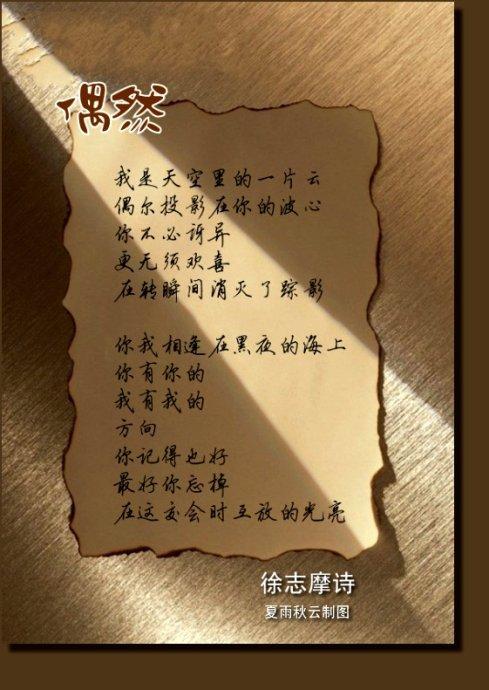 偶然
我是天空里的一片云
偶尔投影在你的波心
你不必讶异
更无须欢喜
在转瞬间消灭了踪影
你我相逢在黑夜的海上
你有你的
我有我的
方向
你记得也好
最好你忘掉
在这交会时互放的光亮
徐志摩诗
夏雨秋云制图